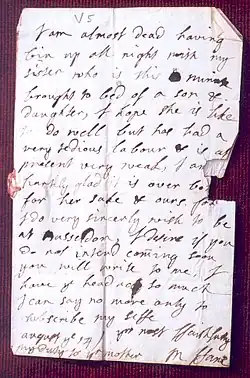 V 5
I am almost dead having
bin up all night with my
sister who is this minute
brought to bed of a son &
daughter, I hope she is like
to do well but has had a
very tedious labour & is at
present very weak, I am
hartily glad it is over bo
for her sake & ours, for
I do very sincerly wish to be
at I desire if you
do not intend coming soon
you will write to me, I
have ye head ach so much
I can say no more only to
subscribe my selfe
august ye 14 yr most ffaithfully
my duty to yr mother M